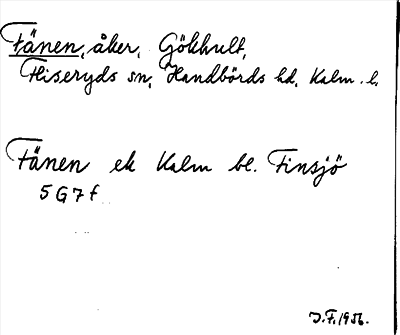 Fänen, åker, Gökhult,
Fliseryds sn, Handbörds hd, Kalm. l.
Fänen ek Kalm bl. Finsjö
5 G 7 f
J.F. 1956.